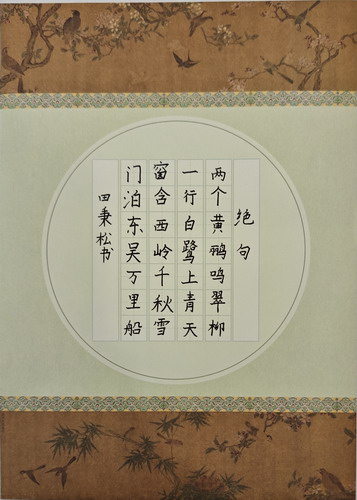 绝句
两个黄鹂鸣翠柳
一行白鹭上青天
窗含西岭千秋雪
门泊东吴万里船
田秉松书